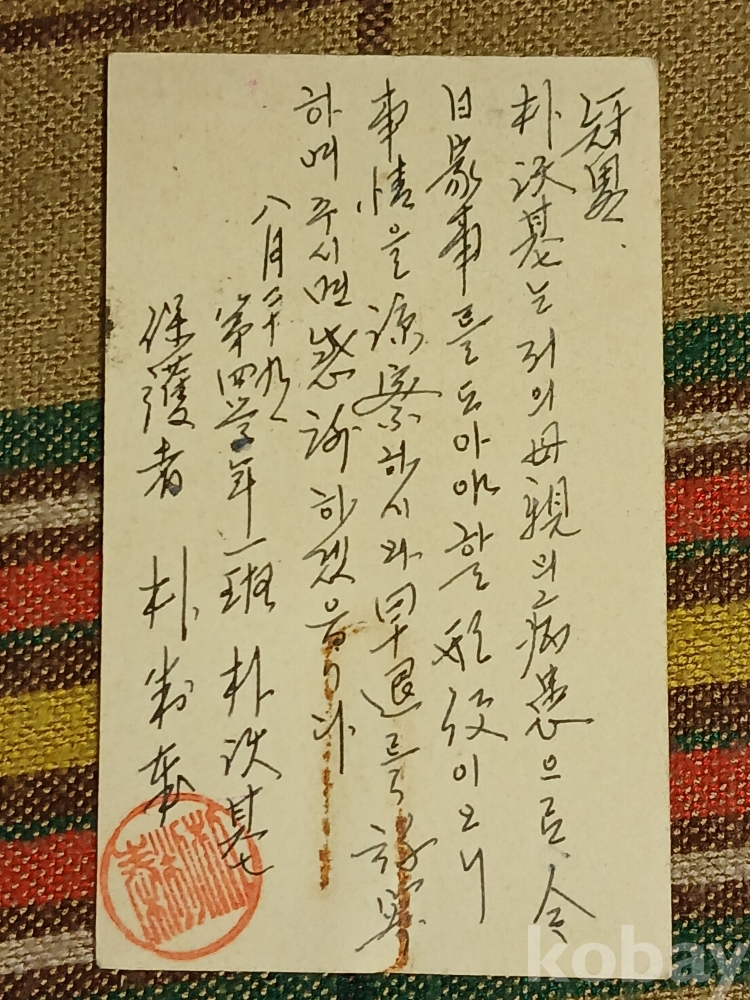 冠畧.
朴 基는 저의 母親의 病患으로 今
日 家事를 도아야 할 形便이오니
事情을 諒察하시와 早退를 許與
하여 주시면 感謝하겠읍니다
八月二十九日
第四学年一班 朴 基
保護者 朴
kobay